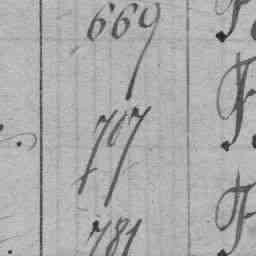 669
707
781